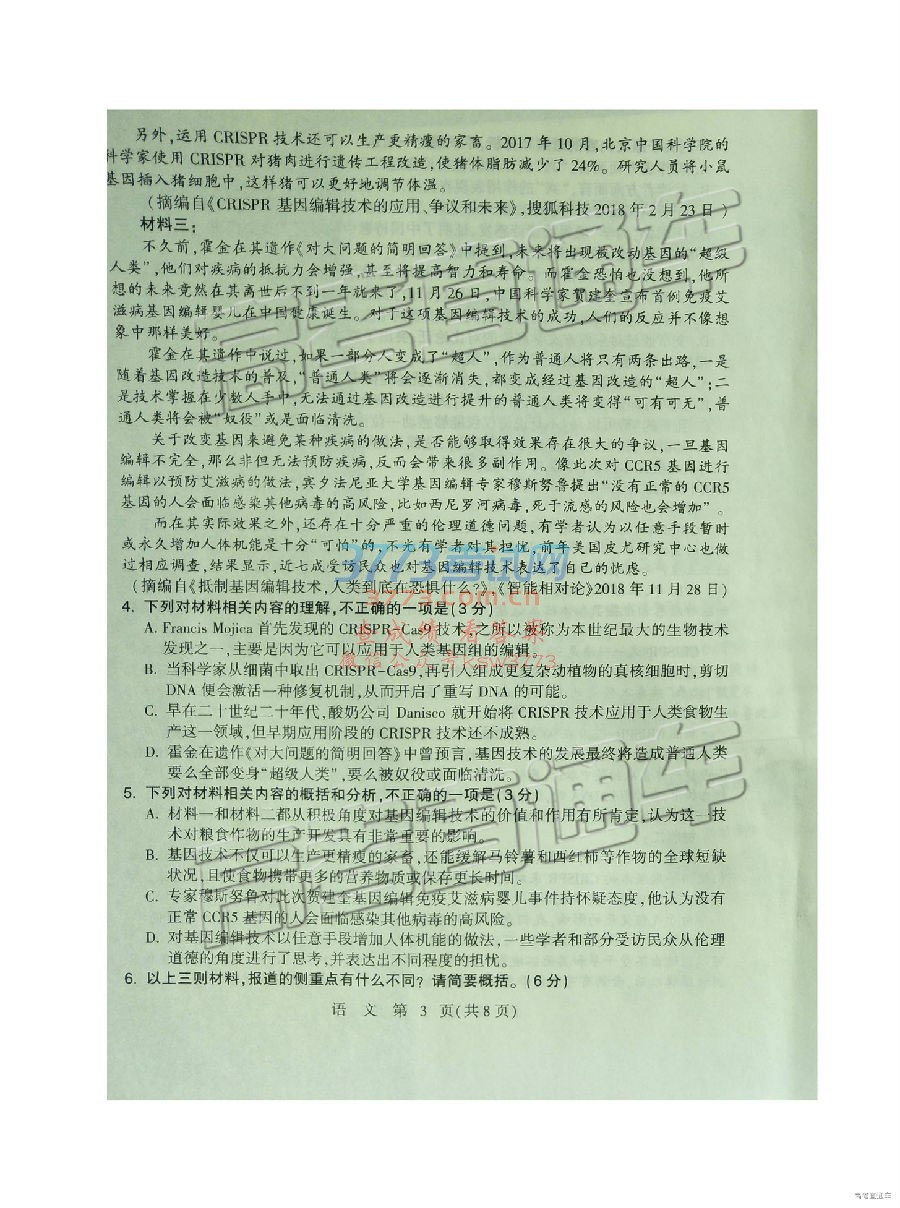 另外,运用 CRISPR 技术还可以生产更精瘦的家畜。2017 年 10 月,北京中国科学院的
科学家使用 CRISPR 对猪肉进行遗传工程改造,使猪体脂肪减少了 24%。研究人员将小鼠
基因插入猪细胞中,这样猪可以更好地调节体温。
(摘编自《CRISPR 基因编辑技术的应用、争议和未来》,搜狐科技 2018 年 2 月 23 日)
材料三:
不久前,霍金在其遗作《对大问题的简明回答》中提到,未来将出现被改动基因的“超级
人类”,他们对疾病的抵抗力会增强,甚至将提高智力和寿命。而霍金恐怕也没想到,他所
想的未来竟然在其离世后不到一年就来了,11 月 26 日,中国科学家贺建奎宣布首例免疫艾
滋病基因编辑婴儿在中国健康诞生。对于这项基因编辑技术的成功,人们的反应并不像想
象中那样美好。
霍金在其遗作中说过,如果一部分人变成了“超人”,作为普通人将只有两条出路,一是
随着基因改造技术的普及,“普通人类”将会逐渐消失,都变成经过基因改造的“超人”;二
是技术掌握在少数人手中,无法通过基因改造进行提升的普通人类将变得“可有可无”,普
通人类将会被“奴役”或是面临清洗。
关于改变基因来避免某种疾病的做法,是否能够取得效果存在很大的争议,一旦基因
编辑不完全,那么非但无法预防疾病,反而会带来很多副作用。像此次对 CCR5 基因进行
编辑以预防艾滋病的做法,宾夕法尼亚大学基因编辑专家穆斯努鲁提出“没有正常的 CCR5
基因的人会面临感染其他病毒的高风险,比如西尼罗河病毒,死于流感的风险也会增加”。
而在其实际效果之外,还存在十分严重的伦理道德问题,有学者认为以任意手段暂时
或永久增加人体机能是十分“可怕”的,不光有学者对其担忧,前年美国皮尤研究中心也做
过相应调查,结果显示,近七成受访民众也对基因编辑技术表达了自己的忧虑。
(摘编自《抵制基因编辑技术,人类到底在恐惧什么?》,《智能相对论》2018 年 11 月 28 日)
4. 下列对材料相关内容的理解,不正确的一项是(3 分)
A. Francis Mojica 首先发现的 CRISPR-Cas9 技术,之所以被称为本世纪最大的生物技术
发现之一,主要是因为它可以应用于人类基因组的编辑。
B. 当科学家从细菌中取出 CRISPR-Cas9,再引入组成更复杂动植物的真核细胞时,剪切
DNA 便会激活一种修复机制,从而开启了重写 DNA 的可能。
C. 早在二十世纪二十年代,酸奶公司 Danisco 就开始将 CRISPR 技术应用于人类食物生
产这一领域,但早期应用阶段的 CRISPR 技术还不成熟。
D. 霍金在遗作《对大问题的简明回答》中曾预言,基因技术的发展最终将造成普通人类
要么全部变身“超级人类”,要么被奴役或面临清洗。
5. 下列对材料相关内容的概括和分析,不正确的一项是(3 分)
A. 材料一和材料二都从积极角度对基因编辑技术的价值和作用有所肯定,认为这一技
术对粮食作物的生产开发具有非常重要的影响。
B. 基因技术不仅可以生产更精瘦的家畜,还能缓解马铃薯和西红柿等作物的全球短缺
状况,且使食物携带更多的营养物质或保存更长时间。
C. 专家穆斯努鲁对此次贺建奎基因编辑免疫艾滋病婴儿事件持怀疑态度,他认为没有
正常 CCR5 基因的人会面临感染其他病毒的高风险。
D. 对基因编辑技术以任意手段增加人体机能的做法,一些学者和部分受访民众从伦理
道德的角度进行了思考,并表达出不同程度的担忧。
6. 以上三则材料,报道的侧重点有什么不同?请简要概括。(6 分)
语 文 第 3 页(共 8 页)
高考直通车
高考直通车
3773考试网
3773.com.cn
查成绩 看答案
微信公众号KSW3773
高考直通车